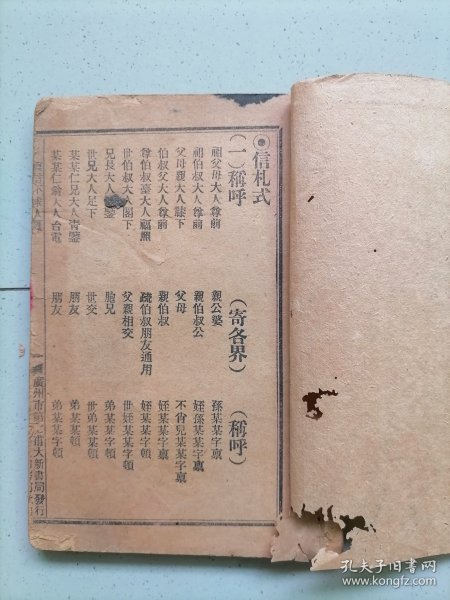 ◉信札式
(一)稱呼 (寄各界) (稱呼)
祖父母大人尊前 親公婆 孫某某字稟
祖伯叔大人尊前 親伯叔公 姪孫某某字稟
父母親大人膝下 父母 不肖兒某某字稟
伯叔父大人尊前 親伯叔 姪某某字稟
尊伯叔臺大人福照 疏伯叔朋友通用 姪某某字頓
世伯叔大人閣下 父親相交 世姪某某字頓
兄長大人 鑒 胞兄 弟某某字頓
世兄大人足下 世交 世弟某某字頓
某某仁兄大人青鑒 朋友 弟某某字頓
某某仁翁大人台電 朋友 弟某某字頓
廣州市第 甫大新書局發行
孔夫子旧书网
www.kongfz.com